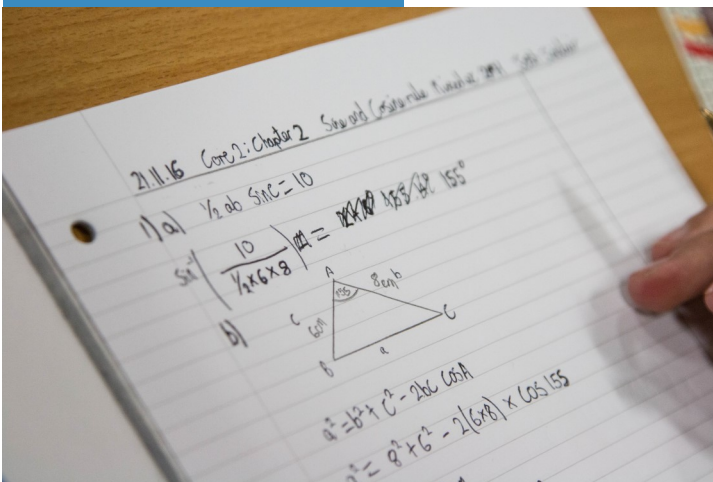 21.11.16 Core 2: Chapter 2 Sine and Cosine rule
1) a) ½ ab Sin C = 10
Sin⁻¹ ( 10 / ½×6×8 ) = 155°
b)
A
155
8cm b
c
6cm
C
B
a
a² = b² + c² - 2bc CosA
a² = 8² + 6² - 2(6×8) × COS 155